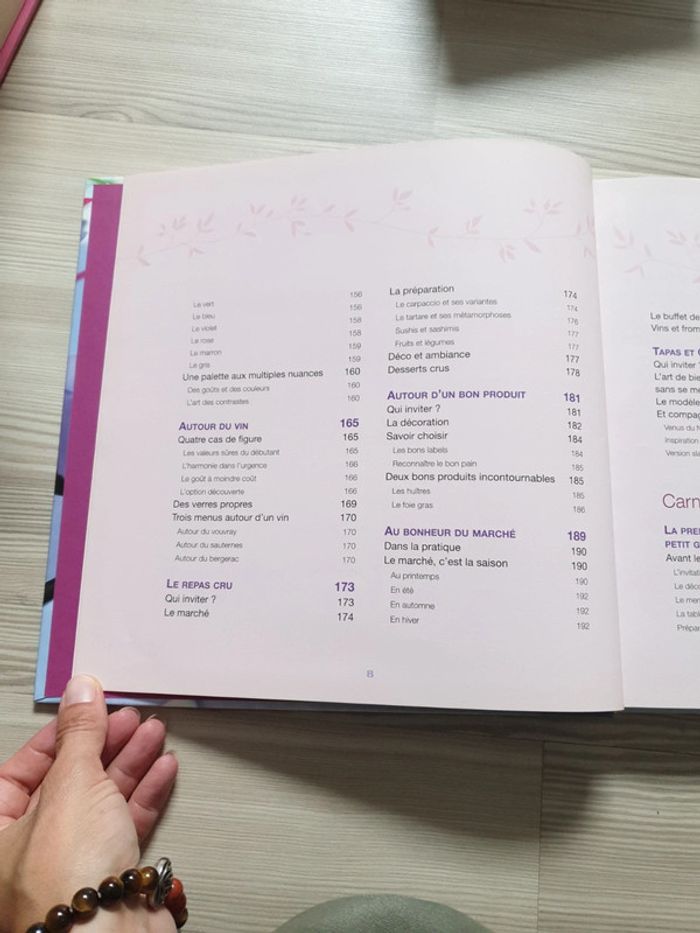 Le vert 156
Le bleu 156
Le violet 158
Le rose 158
Le marron 159
Le gris 159
Une palette aux multiples nuances 160
Des goûts et des couleurs 160
L'art des contrastes 160
AUTOUR DU VIN 165
Quatre cas de figure 165
Les valeurs sûres du débutant 165
L'harmonie dans l'urgence 166
Le goût à moindre coût 166
L'option découverte 166
Des verres propres 169
Trois menus autour d'un vin 170
Autour du vouvray 170
Autour du sauternes 170
Autour du bergerac 170
LE REPAS CRU 173
Qui inviter ? 173
Le marché 174
La préparation 174
Le carpaccio et ses variantes 174
Le tartare et ses métamorphoses 176
Sushis et sashimis 177
Fruits et légumes 177
Déco et ambiance 177
Desserts crus 178
AUTOUR D'UN BON PRODUIT 181
Qui inviter ? 181
La décoration 182
Savoir choisir 184
Les bons labels 184
Reconnaître le bon pain 185
Deux bons produits incontournables 185
Les huîtres 185
Le foie gras 186
AU BONHEUR DU MARCHÉ 189
Dans la pratique 190
Le marché, c'est la saison 190
Au printemps 190
En été 192
En automne 192
En hiver 192
8
Le buffet de
Vins et from
TAPAS ET
Qui inviter
L'art de bie
sans se me
Le modèle
Et compa
Venus du
Inspiration
Version
Carn
LA PRE
PETIT G
Avant le
L'invitat
Le déco
Le men
La tabl
Prépar